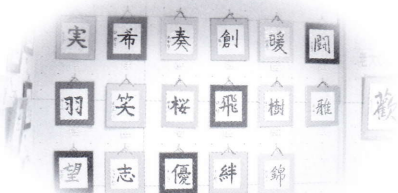 実 希 奏 創 暖 闘
羽 笑 桜 飛 樹 雅 歓
望 志 優 絆 錦